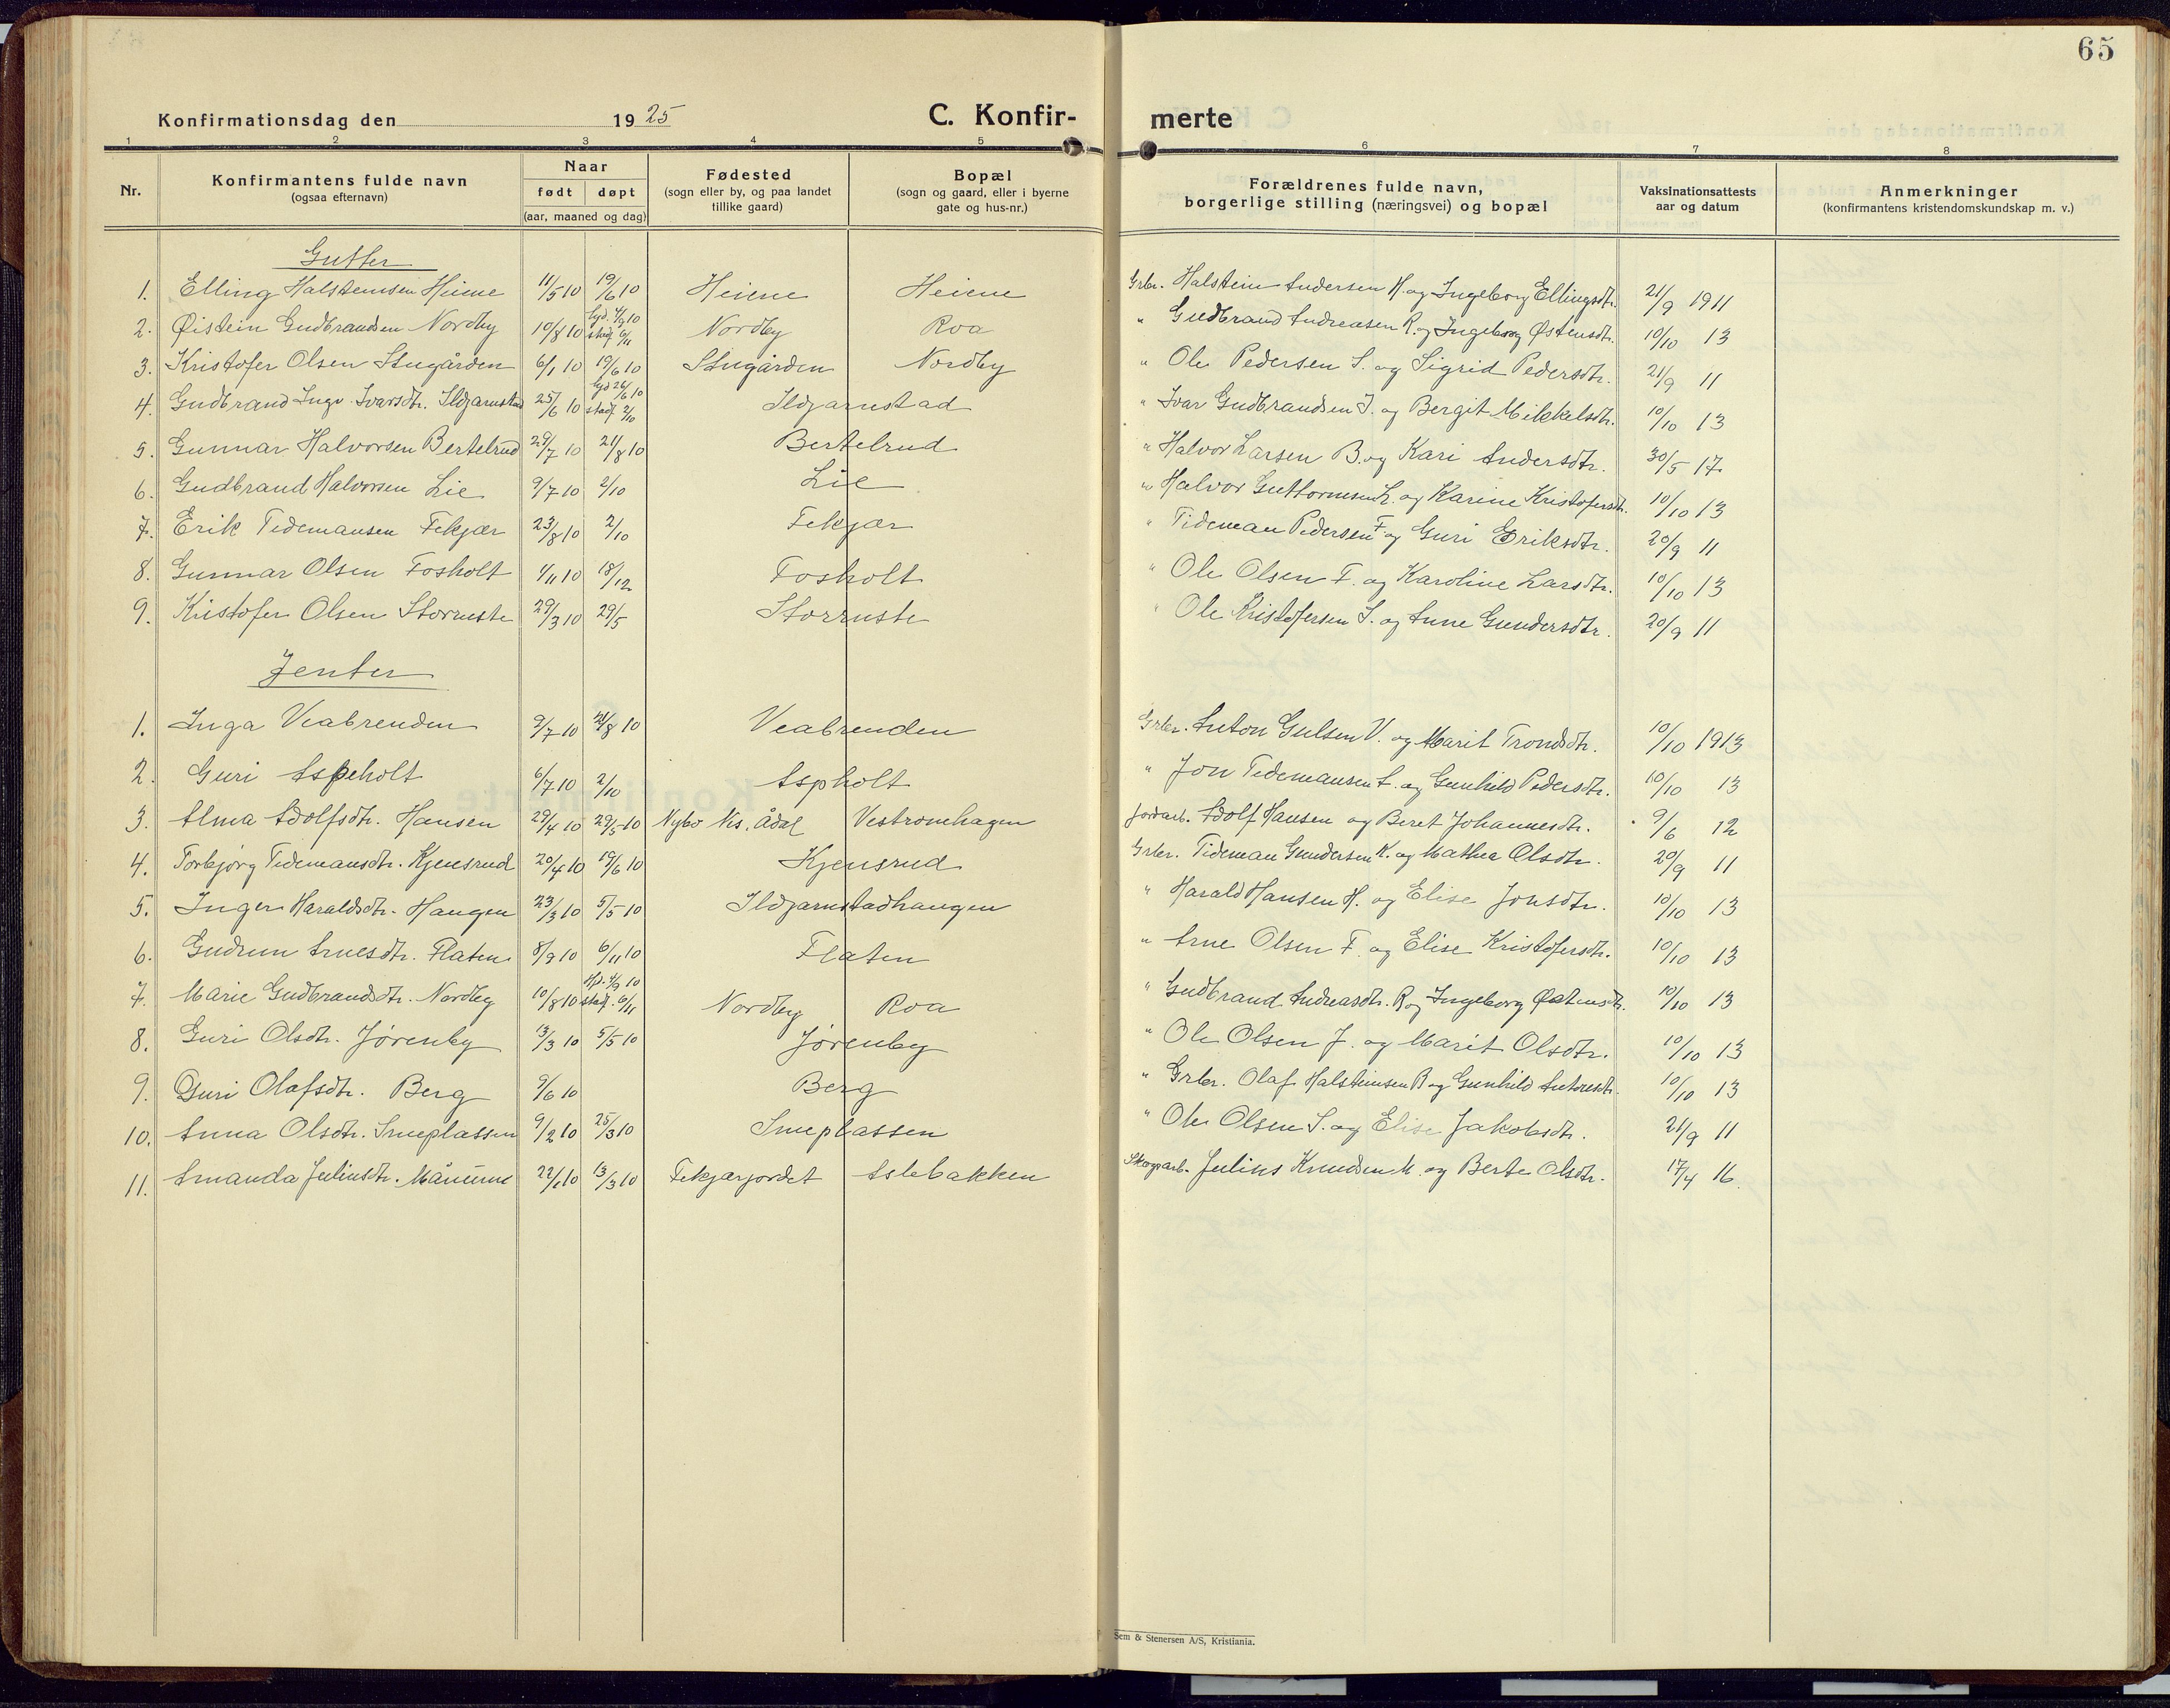 65
Konfirmationsdag den 1925 C. Konfirmerte
1 2 3 4 5 6 7 8
Nr. Konfirmantens fulde navn (ogsaa efternavn) Naar født døpt (aar, maaned og dag) Fødested (sogn eller by, og paa landet tillike gaard) Bopæl (sogn og gaard, eller i byerne gate og hus-nr.) Forældrenes fulde navn, borgerlige stilling (næringsvei) og bopæl Vaksinationsattests aar og datum Anmerkninger (konfirmantens kristendomskundskap m. v.)
Gutter
1. Elling Halsteinsen Heiene 11/5 10 19/6 10 Heiene Heiene Grbr. Halstein Andersen H. og Ingeborg Ellingsdtr. 21/9 1911
2. Øistein Gudbrandsen Nordby 10/8 10 hjd. 4/9 10 stadf. 6/11 Nordby Roa " Gudbrand Andreasen R. og Ingeborg Østensdtr. 10/10 13
3. Kristofer Olsen Stugården 6/1 10 19/6 10 Stugården Nordby " Ole Pedersen S. og Sigrid Pedersdtr. 21/9 11
4. Gudbrand Ingv. Ivarsdtr. Ildjarnstad 25/6 10 hjd 26/6 10 stadf. 2/10 Ildjarnstad " Ivar Gudbrandsen I. og Bergit Mikkelsdtr. 10/10 13
5. Gunnar Halvorsen Bertelrud 29/7 10 21/8 10 Bertelrud " Halvor Larsen B. og Kari Andersdtr. 30/5 17
6. Gudbrand Halvorsen Lie 9/7 10 2/10 Lie " Halvor Guttormsen L. og Karine Kristofersdtr. 10/10 13
7. Erik Tidemansen Fekjær 23/8 10 2/10 Fekjær " Tideman Pedersen F. og Guri Eriksdtr. 20/9 11
8. Gunnar Olsen Fosholt 1/11 10 18/12 Fosholt " Ole Olsen F. og Karoline Larsdtr. 10/10 13
9. Kristofer Olsen Storruste 29/3 10 29/5 Storruste " Ole Kristofersen S. og Anne Gundersdtr. 20/9 11
Jenter
1. Inga Veabrenden 9/7 10 21/8 10 Veabrenden Grbr. Anton Gulsen V. og Marit Trondsdtr. 10/10 1913
2. Guri Aspeholt 6/7 10 2/10 Aspholt " Jon Tidemansen A. og Gunhild Pedersdtr. 10/10 13
3. Alma Adolfsdtr. Hansen 29/4 10 29/5 10 Nybo Ns. Ådal Vestromhagen Jordarb. Adolf Hansen og Beret Johannesdtr. 9/6 12
4. Torbjørg Tidemansdtr. Kjensrud 20/4 10 19/6 10 Kjensrud Grbr. Tideman Gundersen K. og Mathea Olsdtr. 20/9 11
5. Inger Haraldsdtr. Haugen 23/3 10 5/5 10 Ildjarnstadhaugen " Harald Hansen H. og Elise Jonsdtr. 10/10 13
6. Gudrun Arnesdtr. Flaten 8/9 10 6/11 10 Flaten " Arne Olsen F. og Elise Kristofersdtr. 10/10 13
7. Marie Gudbrandsdtr. Nordby 10/8 10 4/9 10 stadf. 6/11 Nordby Roa " Gudbrand Andreasdtr. R. og Ingeborg Østensdtr. 10/10 13
8. Guri Olsdtr. Jørenby 13/3 10 5/5 10 Jørenby " Ole Olsen J. og Marit Olsdtr. 10/10 13
9. Guri Olafsdtr. Berg 9/6 10 Berg " Grbr. Olaf Halsteinsen B og Gunhild 10/10 13
10. Anna Olsdtr. Smeplassen 9/2 10 25/3 10 Smeplassen " Ole Olsen S. og Elise Jakobsdtr. 21/9 11
11. Amanda Juliusdtr. 22/1 10 13/3 10 Fekjærjordet Aslebakken Skogsarb. Julius Knudsen M. og Berte Olsdtr. 17/4 16.
Sem & Stenersen A/S, Kristiania.